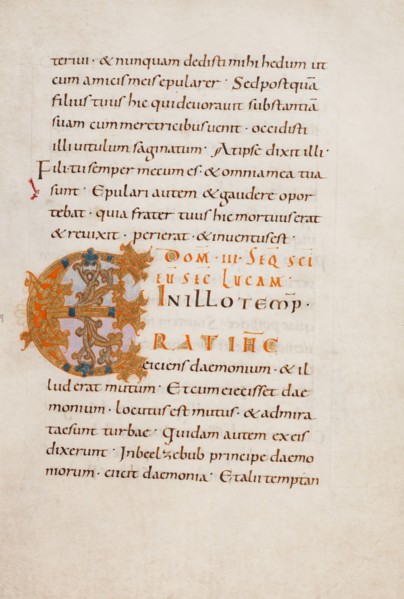 teriui · & nunquam dedisti mihi hedum ut
cum amicis meis epularer · Sed postquā
filius tuus hic qui deuorauit substantiā
suam cum meretricibus uenit · occidisti
illi uitulum saginatum · At ipse dixit illi ·
Fili tu semper mecum es · & omnia mea tua
sunt · Epulari autem & gaudere opor
tebat · quia frater tuus hic mortuus erat
& reuixit · perierat · & inuentus est ·
DOM · III · SEQ SCI
EU SEC LUCAM
IN ILLO TEMP̄ ·
ERAT IHC
eiciens daemonium · & il
lud erat mutum · Et cum eiecisset dae
monium · locutus est mutus · & admira
tae sunt turbae · Quidam autem ex eis
dixerunt · In beelzebub principe daemo
niorum · eicit daemonia · Et alii temptan